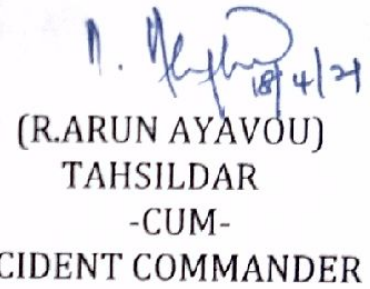 18/4/21
(R.ARUN AYAVOU)
TAHSILDAR
-CUM-
CIDENT COMMANDER